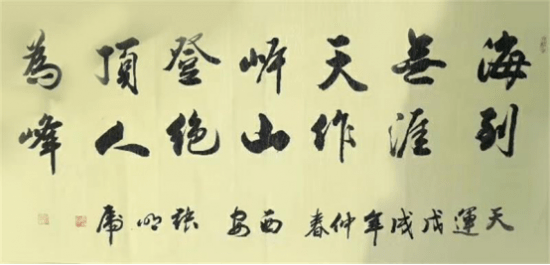 海到
無涯
天作
岸山
登绝
顶人
為峰
天運戊戌年仲春西安張明虎